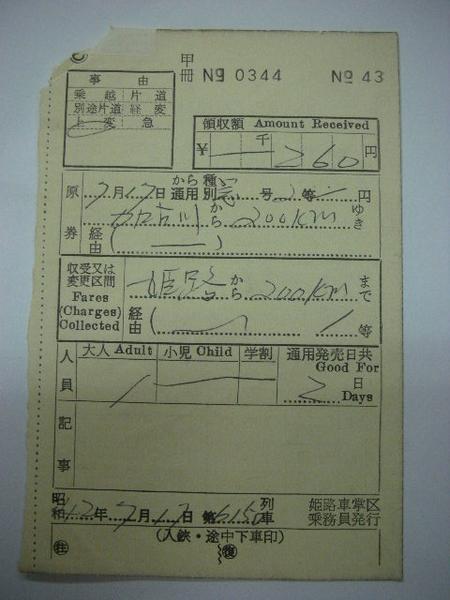 甲
冊 No 0344 No 43
事 由
乗越 片道
別途片道 経変
上変 急
領収額 Amount Received
¥ 千 260 円
原券
7月17日 から通用 種別 号 2等 円
加古川 から 200km ゆき
経由 ( )
収受又は
変更区間
Fares
(Charges)
Collected
姫路 から 200km まで
経由 ( ) 1等
人員
大人 Adult 小児 Child 学割 通用発売日共
Good For
1 2 日
Days
記事
昭和42年7月17日 第615列車 姫路車掌区
乗務員発行
(入鋏・途中下車印)